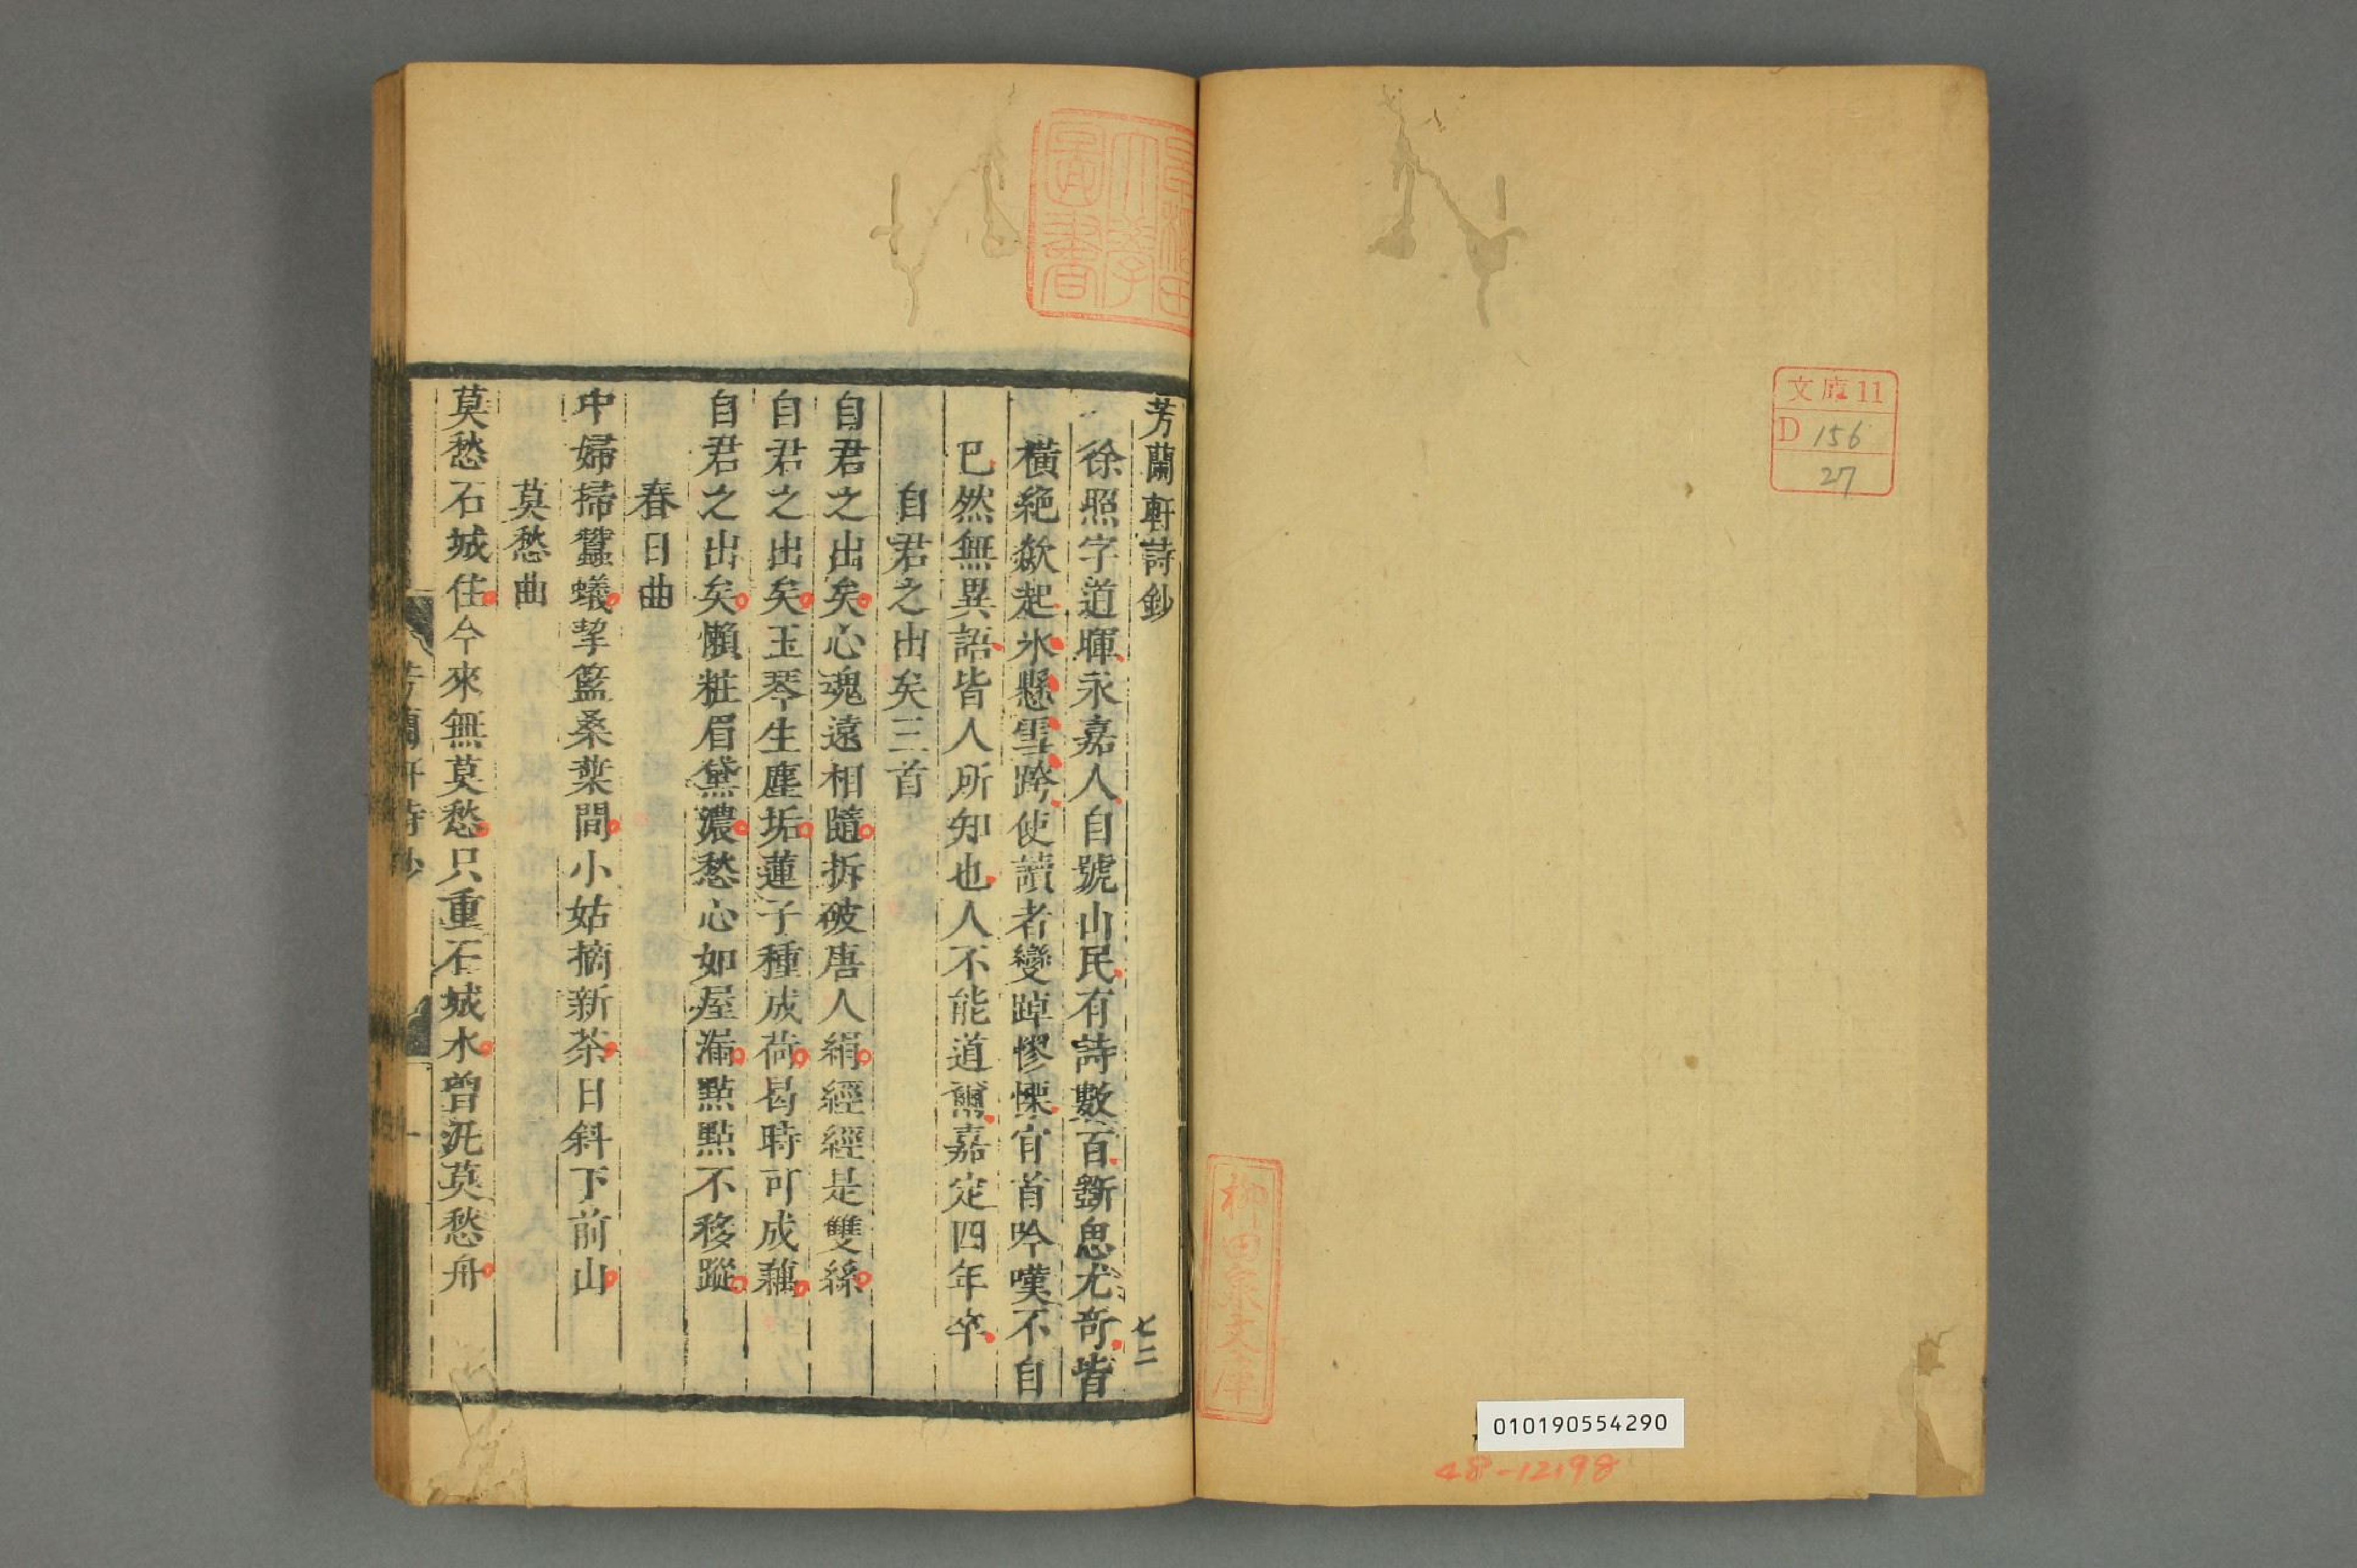 文庫11
D 156
27
柳田泉文庫
010190554290
48-12198
芳蘭軒詩鈔
七二
徐照字道暉永嘉人自號山民有詩數百斵思尤奇皆
橫絶欻起氷懸雪跨使讀者變踔憀慄肎首吟嘆不自
已然無異語皆人所知也人不能道爾嘉定四年卒
自君之出矣三首
自君之出矣心魂遠相隨拆破唐人絹經經是雙絲
自君之出矣玉琴生塵垢蓮子種成荷曷時可成藕
自君之出矣懶粧眉黛濃愁心如屋漏點點不移蹤
春日曲
中婦掃蠶蟻挈籃桑葉間小姑摘新茶日斜下前山
莫愁曲
莫愁石城住今來無莫愁只重石城水曾汎莫愁舟
芳蘭軒詩鈔
一